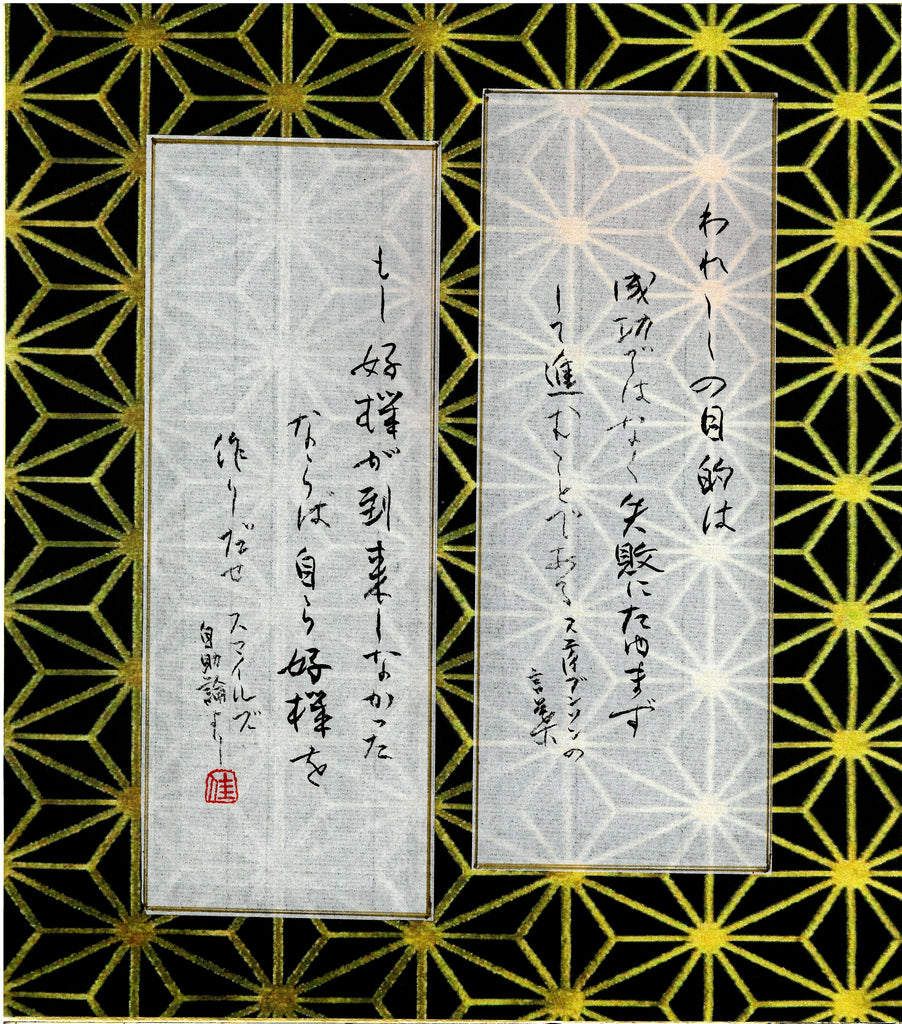 われ〳〵の目的は
成功ではなく失敗にたゆまず
して進むことである スティブンソンの
言葉
もし好機が到来しなかった
ならば自ら好機を
作りだせ スマイルズ
自助論より
佳